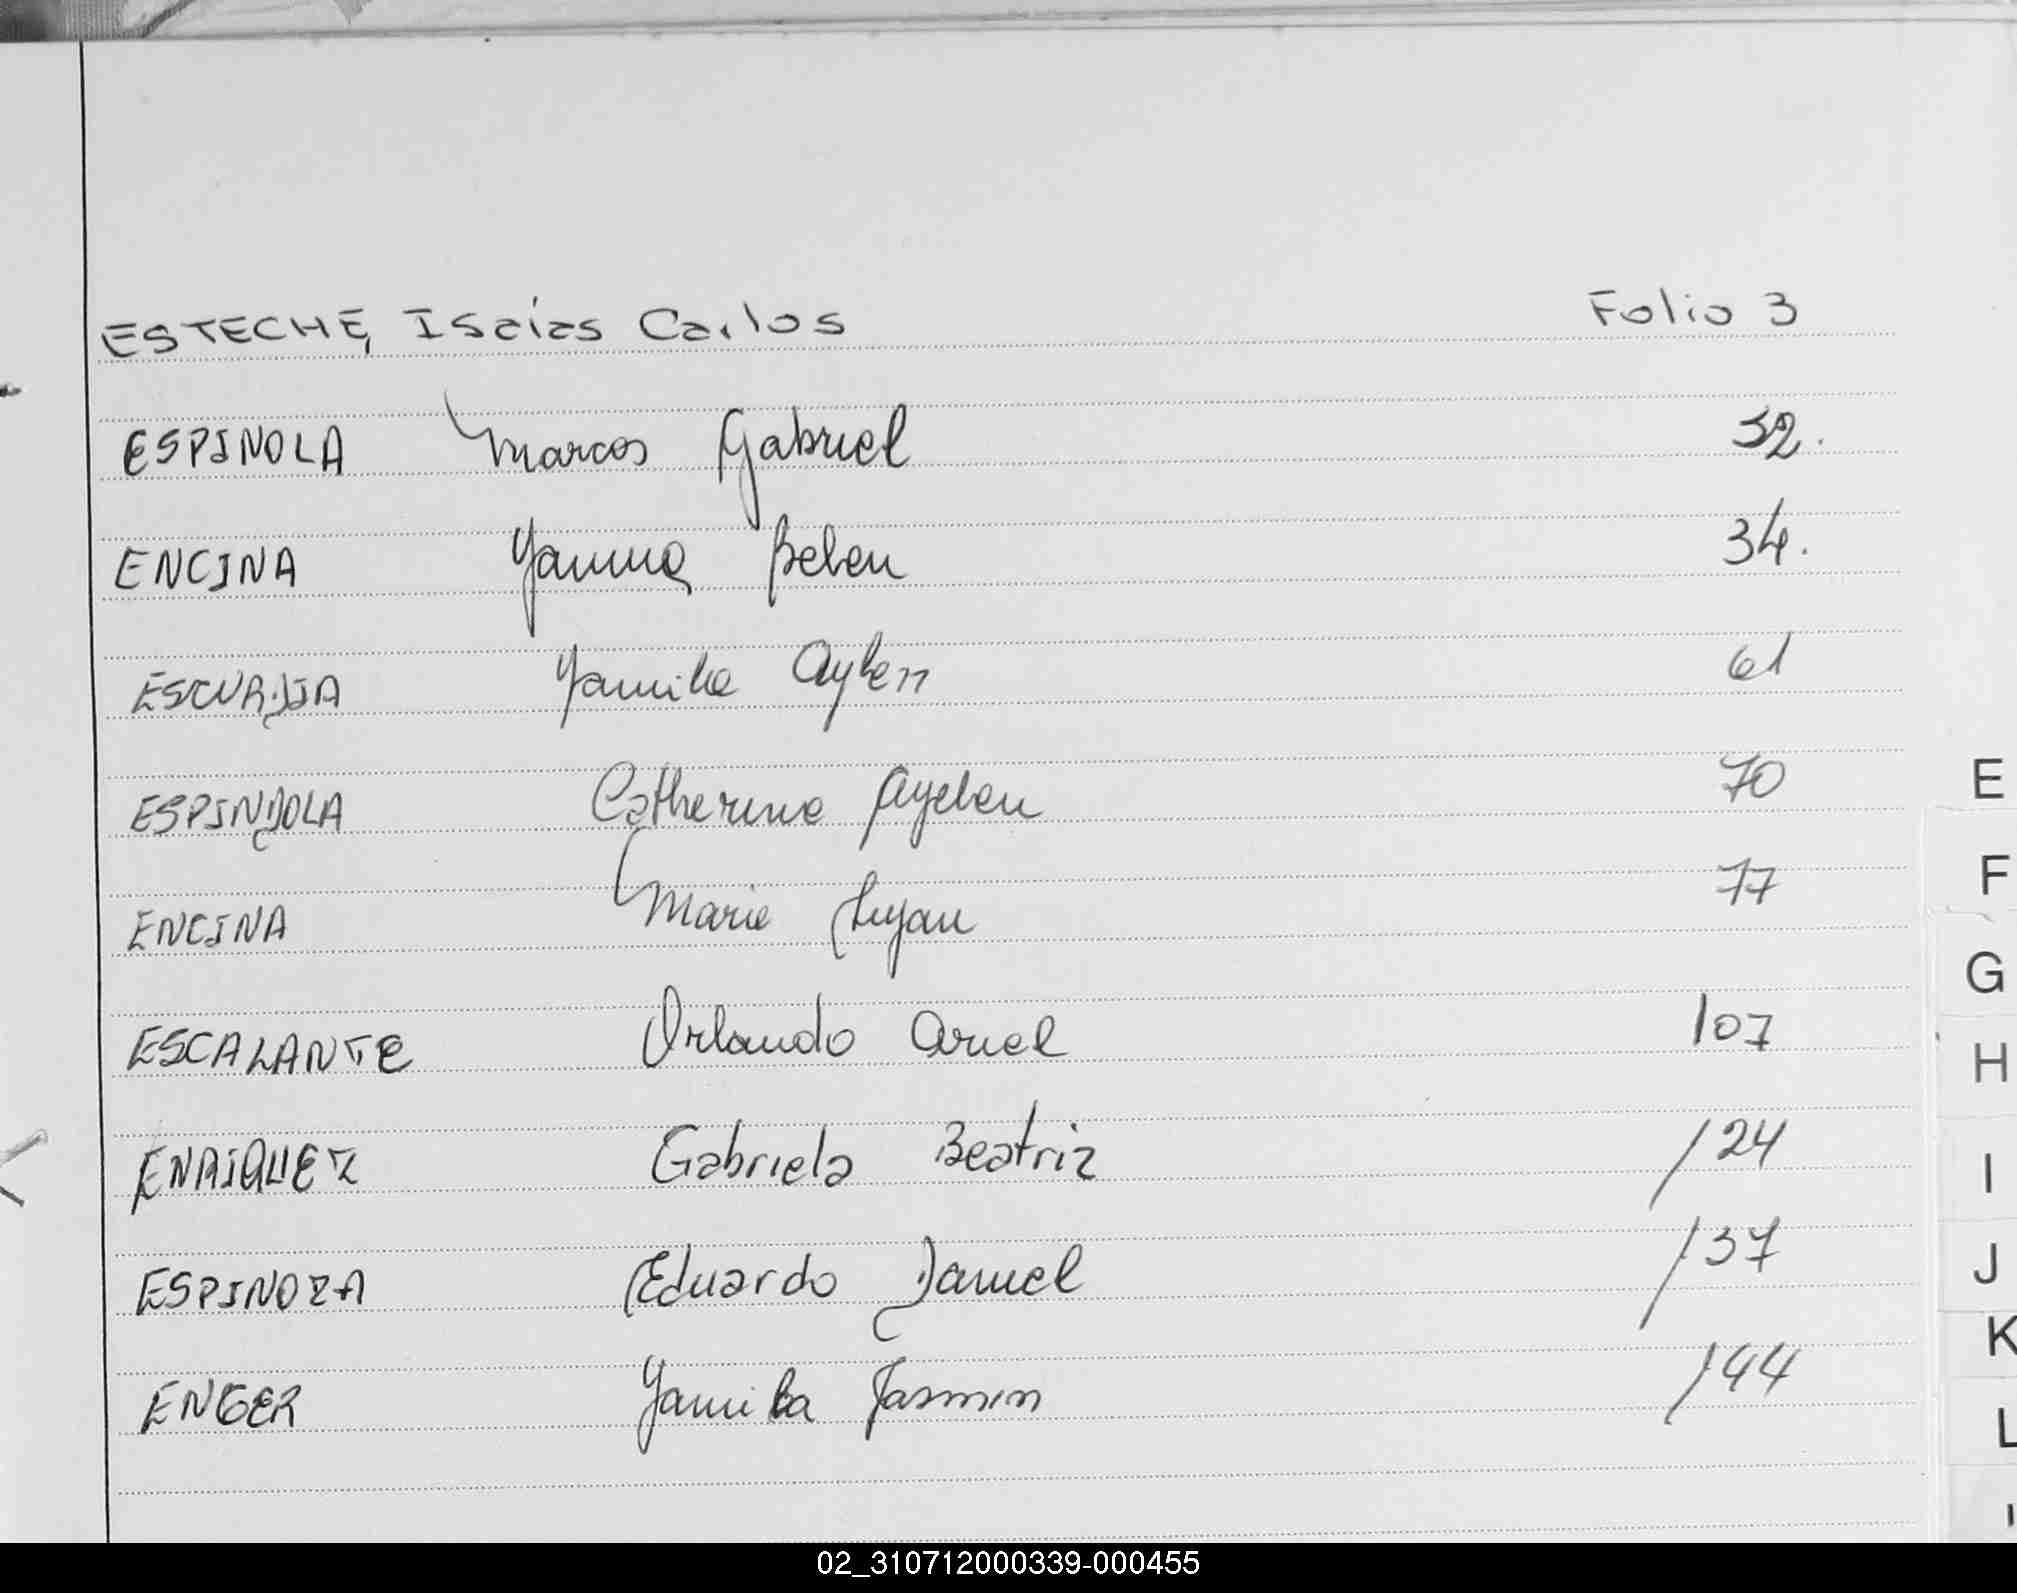 ESTECHE, Isaias Carlos Folio 3
ESPINOLA Marcos Gabriel 32.
ENCINA Yanina Belen 34.
Yamila Aylen 61
ESPINDOLA Catherine Ayelen 70
ENCINA Maria Lujan 77
ESCALANTE Orlando Ariel 107
ENRIQUEZ Gabriela Beatriz 124
ESPINOZA Eduardo Daniel 137
ENGER Yamila Jasmin 144
E
F
G
H
I
J
K
L
02_310712000339-000455